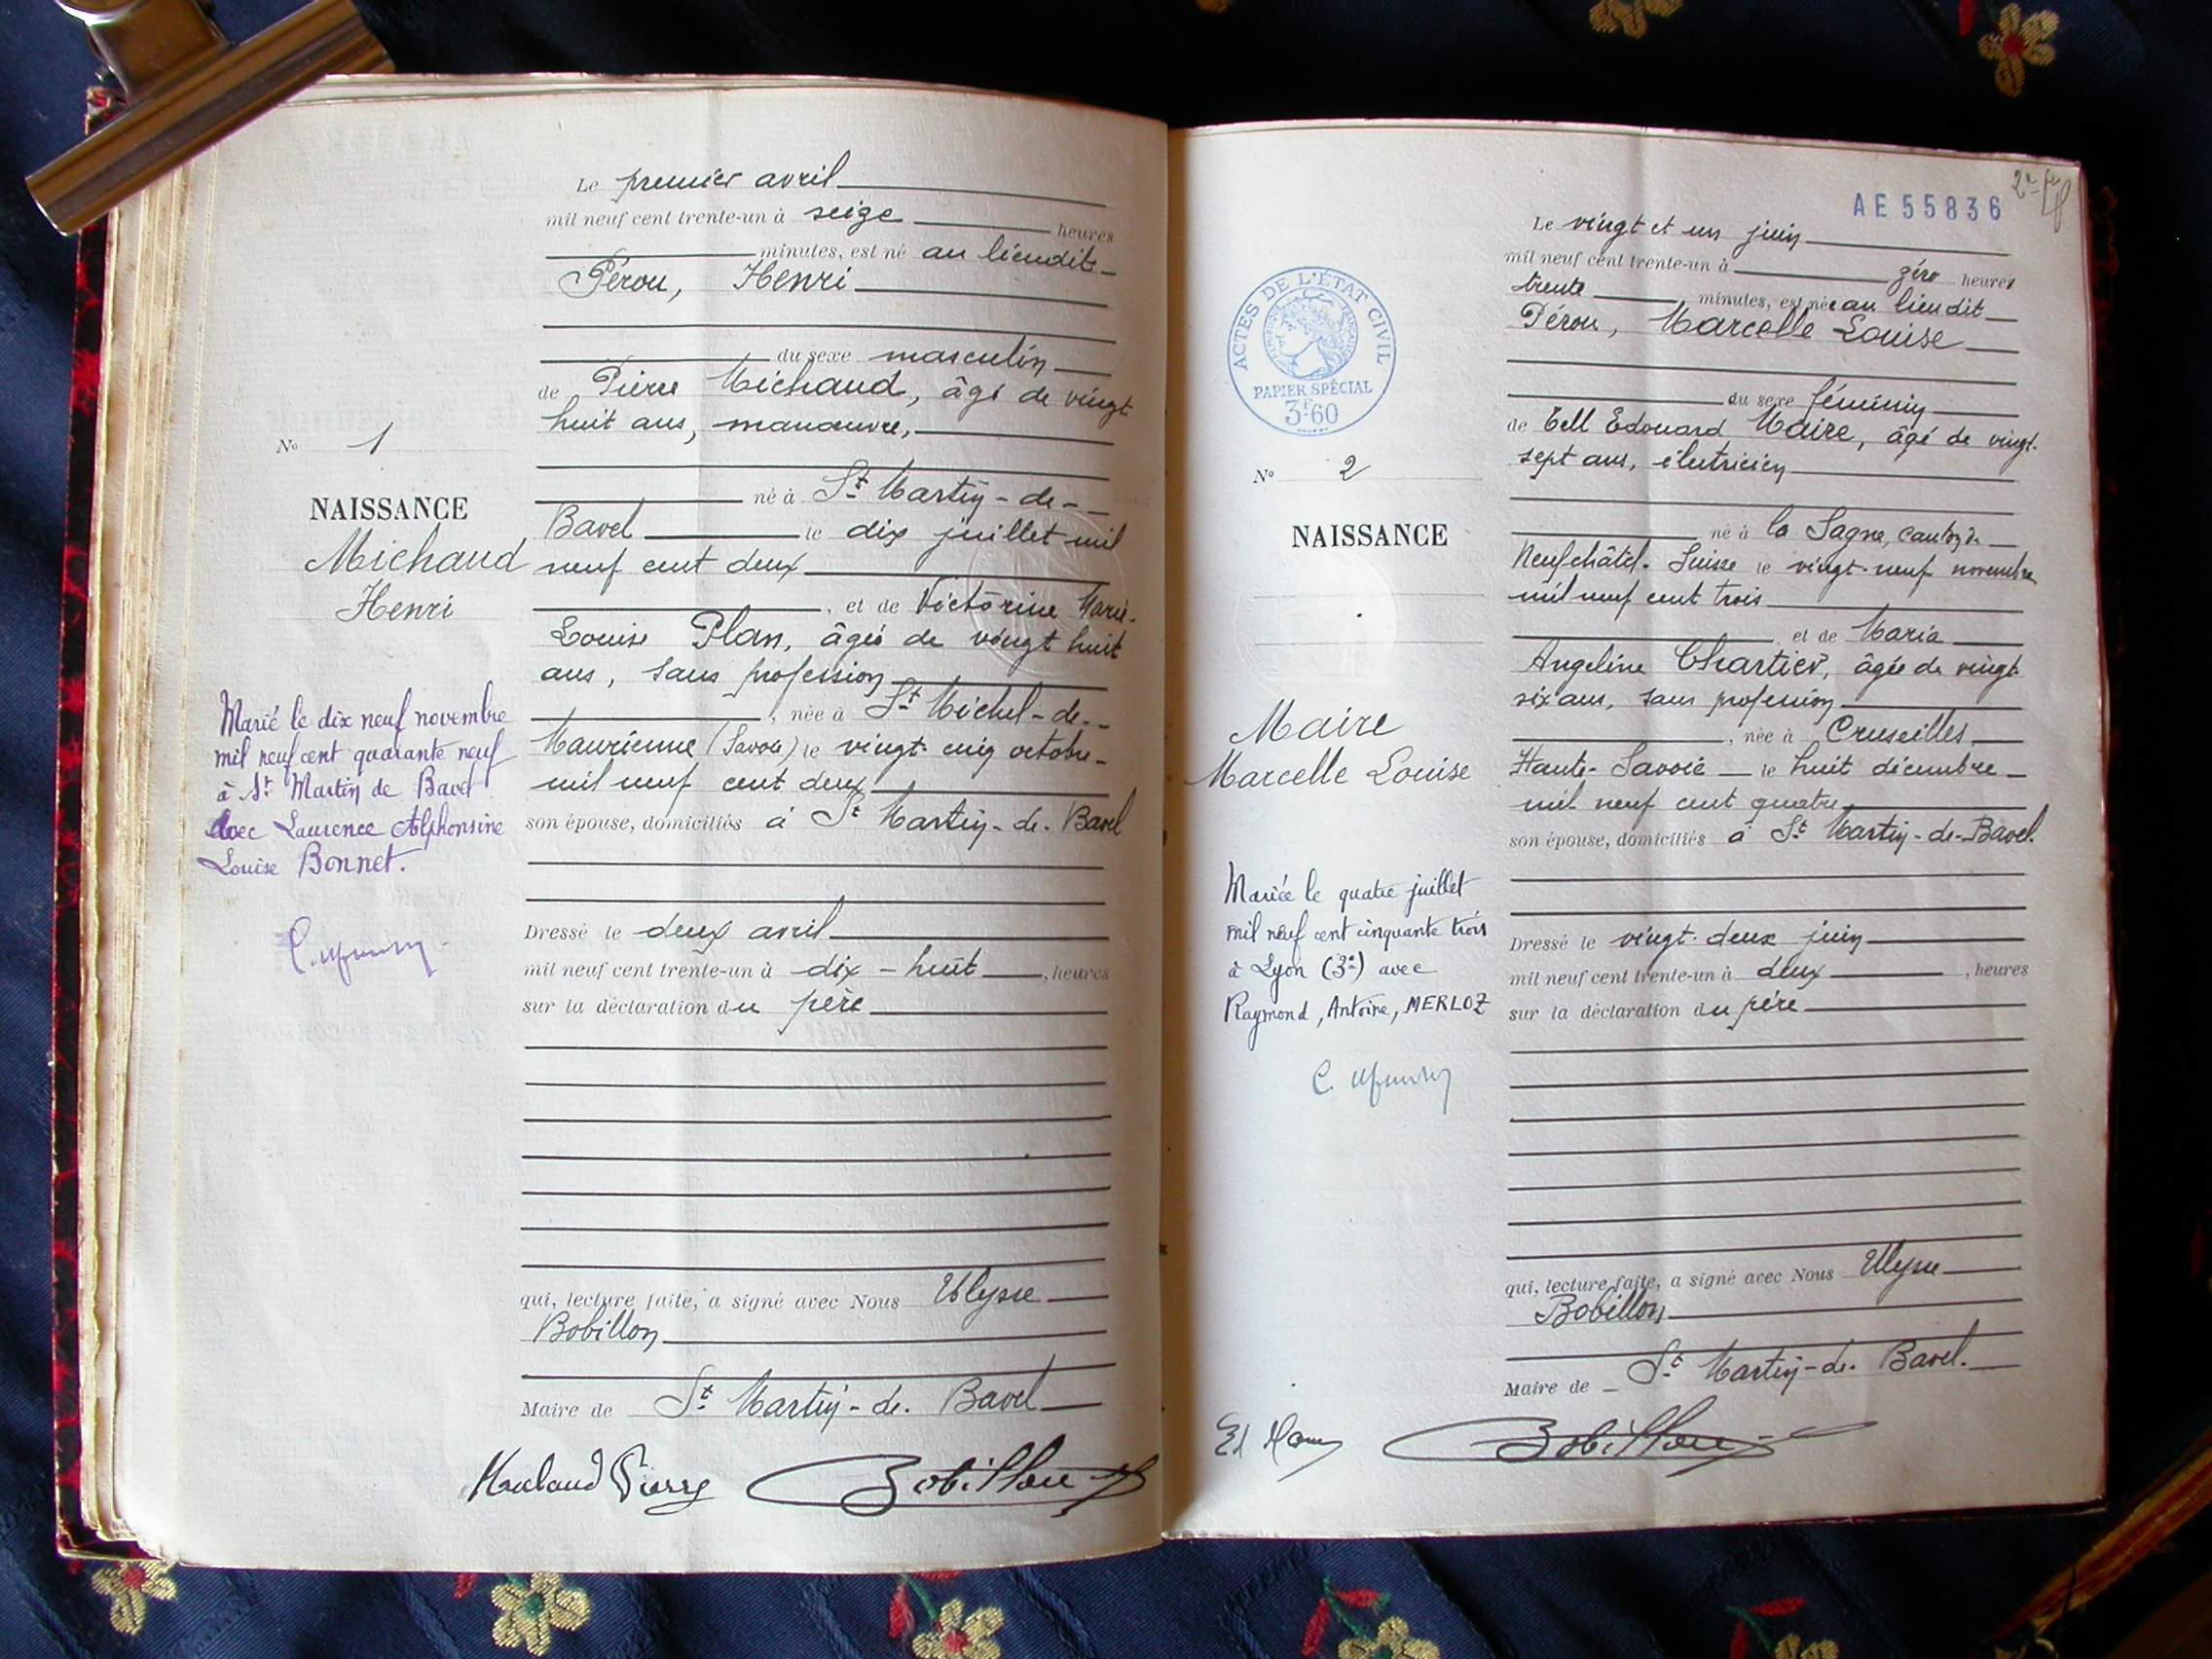 Le premier avril
mil neuf cent trente-un à seize heures
minutes, est né au lieudit
Pérou, Henri
du sexe masculin
de Pierre Michaud, âgé de vingt
huit ans, manœuvre,
né à St Martin-de-
Bavel le dix juillet mil
neuf cent deux
, et de Victorine Marie-
Louise Plan, âgée de vingt huit
ans, sans profession
, née à St Michel-de-
Maurienne (Savoie) le vingt-cinq octobre
mil neuf cent deux
son épouse, domiciliés à St Martin-de-Bavel
Dressé le deux avril
mil neuf cent trente-un à dix-huit, heures
sur la déclaration du père
qui, lecture faite, a signé avec Nous Ulysse
Bobillon
Maire de St Martin-de-Bavel
Michaud Pierre Bobillon
No 1
NAISSANCE
Michaud
Henri
Marié le dix neuf novembre
mil neuf cent quarante neuf
à St Martin de Bavel
avec Laurence Alphonsine
Louise Bonnet.
AE 55836
Le vingt et un juin
mil neuf cent trente-un à zéro heures
trente minutes, est née au lieudit
Pérou, Marcelle Louise
du sexe féminin
de Tell Edouard Maire, âgé de vingt-
sept ans, électricien
né à la Sagne, canton de
Neufchâtel. Suisse le vingt-neuf novembre
mil neuf cent trois
et de Maria
Angeline Chartier, âgée de vingt
six ans, sans profession
, née à Cruseilles
Haute-Savoie le huit décembre
mil neuf cent quatre
son épouse, domiciliés à St Martin-de-Bavel.
Dressé le vingt-deux juin
mil neuf cent trente-un à deux, heures
sur la déclaration du père
qui, lecture faite, a signé avec Nous Ulysse
Bobillon
Maire de St Martin-de-Bavel.
Ed Maire Bobillon
ACTES DE L'ÉTAT CIVIL
RÉPUBLIQUE FRANÇAISE
PAPIER SPÉCIAL
3F60
No 2
NAISSANCE
Maire
Marcelle Louise
Mariée le quatre juillet
mil neuf cent cinquante trois
à Lyon (3e) avec
Raymond, Antoine, MERLOZ